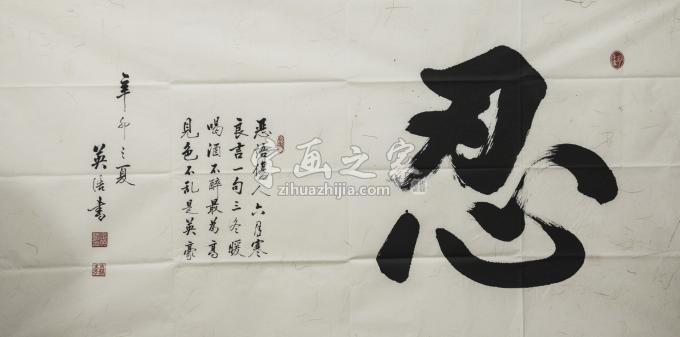 忍
恶语伤人六月寒
良言一句三冬暖
喝酒不醉最为高
见色不乱是英豪
辛卯之夏
英语书
字画之家
zihuazhijia.com